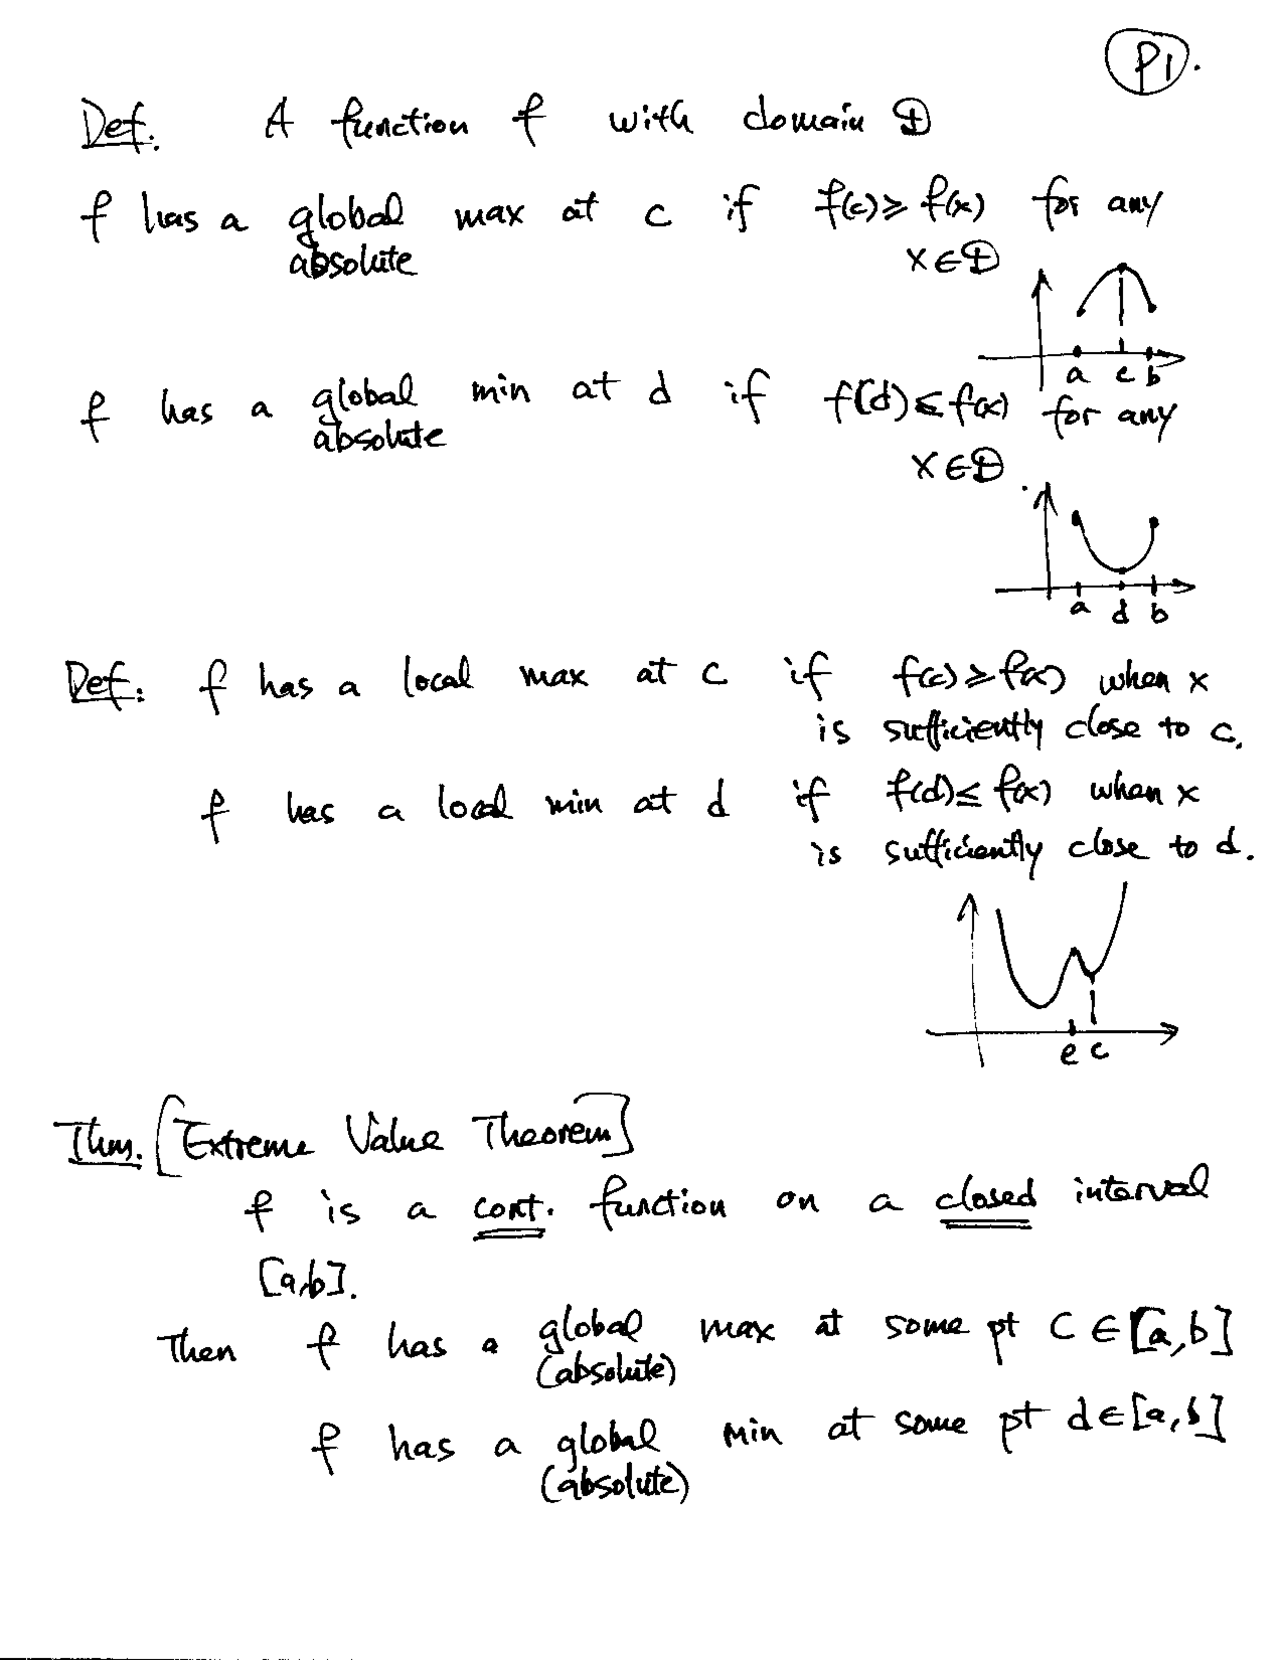 P1.
Def. A function f with domain D
f has a global max at c if f(c) ≥ f(x) for any
absolute x ∈ D
a c b
f has a global min at d if f(d) ≤ f(x) for any
absolute x ∈ D
a d b
Def: f has a local max at c if f(c) ≥ f(x) when x
is sufficiently close to c.
f has a local min at d if f(d) ≤ f(x) when x
is sufficiently close to d.
e c
Thm. [Extreme Value Theorem]
f is a cont. function on a closed interval
[a,b].
Then f has a global max at some pt C ∈ [a,b]
(absolute)
f has a global min at some pt d ∈ [a,b]
(absolute)